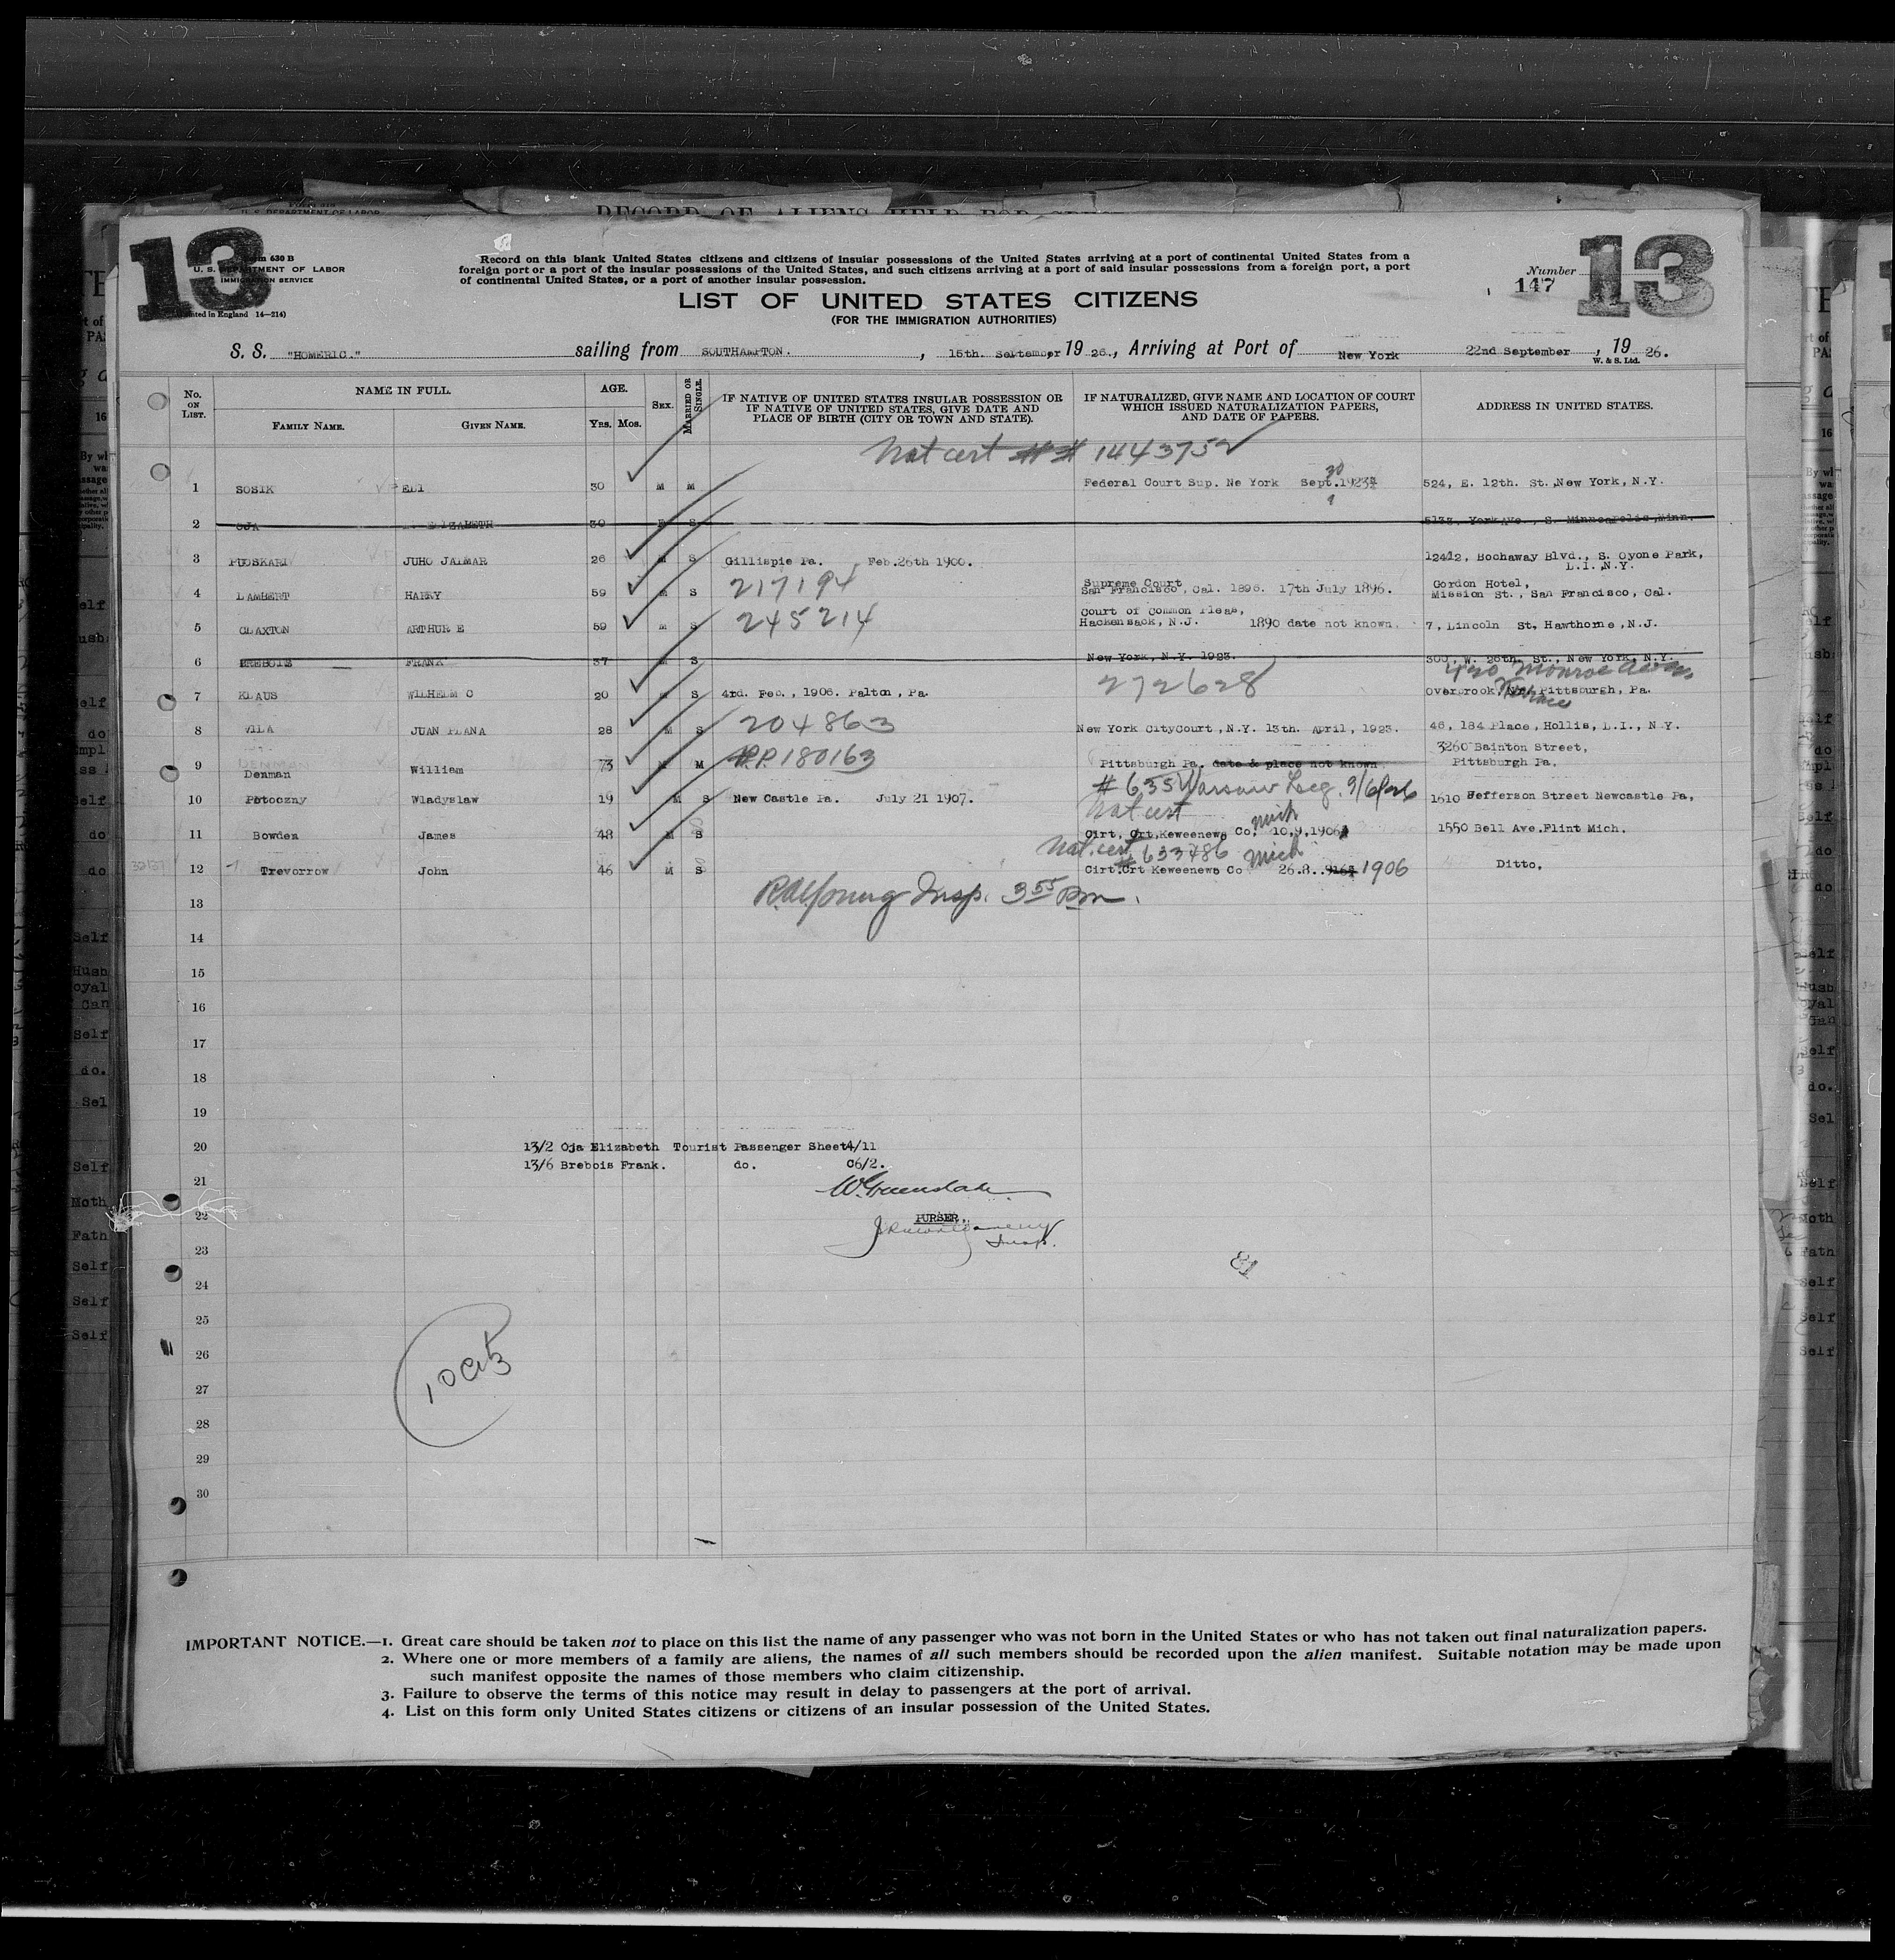 RECORD OF ALIENS HELD FOR
U. S. DEPARTMENT OF LABOR
13
Form 630 B
U. S. DEPARTMENT OF LABOR
IMMIGRATION SERVICE
(Printed in England 14—214)
Record on this blank United States citizens and citizens of insular possessions of the United States arriving at a port of continental United States from a
foreign port or a port of the insular possessions of the United States, and such citizens arriving at a port of said insular possessions from a foreign port, a port
of continental United States, or a port of another insular possession.
LIST OF UNITED STATES CITIZENS
(FOR THE IMMIGRATION AUTHORITIES)
Number
147
13
S. S. "HOMERIC." sailing from SOUTHAMPTON. , 15th. September 19 26., Arriving at Port of New York 22nd September , 19 26.
W. & S. Ltd.
No. ON LIST. NAME IN FULL. AGE. SEX. MARRIED OR SINGLE. IF NATIVE OF UNITED STATES INSULAR POSSESSION OR IF NATIVE OF UNITED STATES, GIVE DATE AND PLACE OF BIRTH (CITY OR TOWN AND STATE). IF NATURALIZED, GIVE NAME AND LOCATION OF COURT WHICH ISSUED NATURALIZATION PAPERS, AND DATE OF PAPERS. ADDRESS IN UNITED STATES.
FAMILY NAME. GIVEN NAME. YRS. MOS.
Nat cert # # 1443752
1 SOSIK ELI 30 M M Federal Court Sup. Ne York Sept. 30 1923 524, E. 12th. St.,New York, N.Y.
2 OJA ELIZABETH 30 F S 5133, York Ave., S. Minneapolis,Minn.
3 PUOSKARI JUHO JALMAR 26 M S Gillispie Pa. Feb.26th 1900. 12412, Bochaway Blvd., S. Oyone Park,
L.I.,N.Y.
4 LAMBERT HARRY 59 M S 217194 Supreme Court
San Francisco, Cal. 1896. 17th July 1896. Gordon Hotel,
Mission St., San Francisco, Cal.
5 CLAXTON ARTHUR E 59 M S 245214 Court of Common Pleas,
Hackensack, N.J. 1890 date not known. 7, Lincoln St. Hawthorne, N.J.
6 BREBOIS FRANK 37 M S New York, N.Y. 1923. 300, W. 26th. St., New York, N.Y.
420 Monroe
7 KLAUS WILHELM C 20 M S 4rd. Feb., 1906. Palton, Pa. 272628 Overbrook, Pittsburgh, Pa.
Terrace
8 VILA JUAN PLANA 28 M S 204863 New York CityCourt, N.Y. 13th. April, 1923. 46, 184 Place, Hollis, L.I., N.Y.
DENMAN
9 Denman William 73 M M P.P. 180163 Pittsburgh Pa. date & place not known. 3260 Bainton Street,
Pittsburgh Pa.
# 635 Warsaw Leg. 9/6/26
10 Potoczny Wladyslaw 19 M S New Castle Pa. July 21 1907. 1610 Jefferson Street Newcastle Pa,
Nat cert
11 Bowden James 48 M S Cirt, Crt,Keweenewo Co. Mich 10,9,1906 1550 Bell Ave.Flint Mich.
Nat. cert # 633486 Mich
12 Trevorrow John 46 M S Cirt.Crt Keweenewo Co 26.8. 1906 Ditto.
13 Insp. 3 55 Pm.
14
15
16
17
18
19
20 13/2 Oja Elizabeth Tourist Passenger Sheet4/11
13/6 Brebois Frank. do. C6/2.
21
22 PURSER.
Insp.
23
81
24
25
26
27
28
29
30
IMPORTANT NOTICE.—1. Great care should be taken not to place on this list the name of any passenger who was not born in the United States or who has not taken out final naturalization papers.
2. Where one or more members of a family are aliens, the names of all such members should be recorded upon the alien manifest. Suitable notation may be made upon
such manifest opposite the names of those members who claim citizenship.
3. Failure to observe the terms of this notice may result in delay to passengers at the port of arrival.
4. List on this form only United States citizens or citizens of an insular possession of the United States.